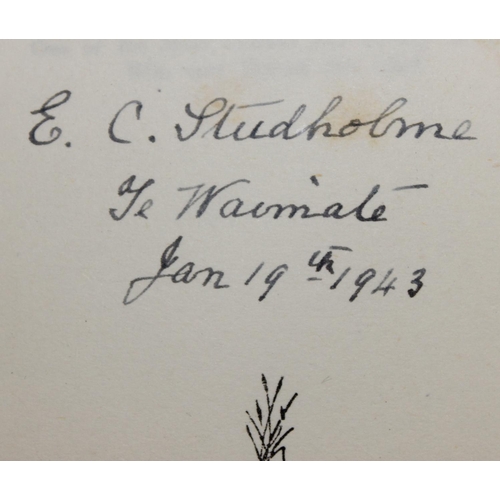 E. C. Studholme
Te Waimate
Jan 19th 1943